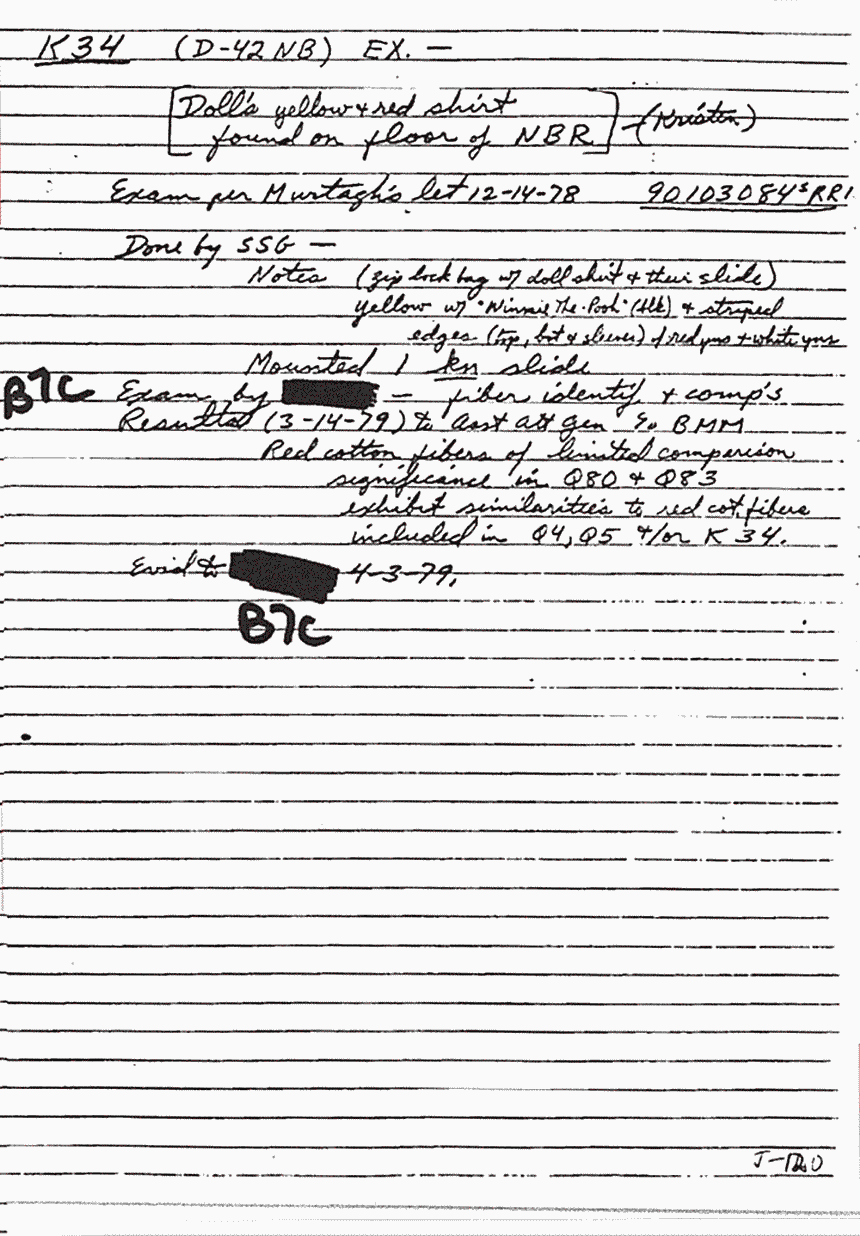 K34 (D-42NB) EX. —
[Doll's yellow & red shirt
found on floor of NBR] - (Kristen)
Exam per Murtagh's let 12-14-78 90103084 S RRI
Done by SSG —
Notes (zip lock bag w/ doll shirt & their slide)
yellow w/ "Winnie-The-Pooh" (blk) & striped
edges (top, bot & sleeves) of red yns & white yns
Mounted 1 kn slide
B7C Exam by — fiber identif & comp's
Results (3-14-79) to Asst Att Gen BMM
Red cotton fibers of limited comparison
significance in Q80 & Q83
exhibit similarities to red cot. fibers
included in Q4, Q5 &/or K34.
Evid to 4-3-79.
B7C